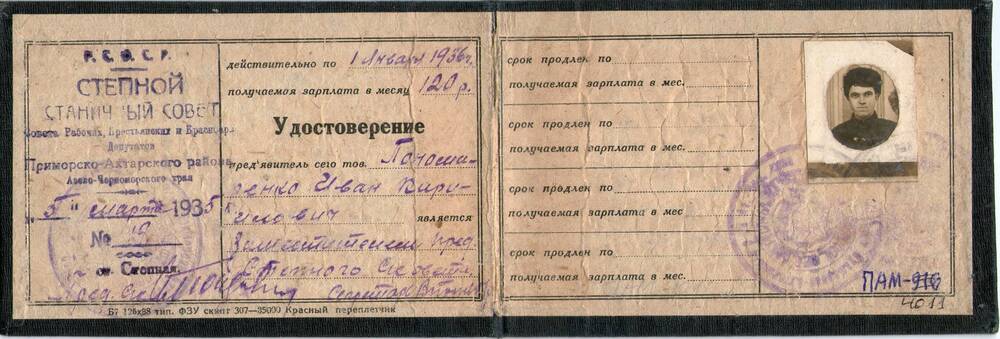 Р.С.Ф.С.Р.
СТЕПНОЙ
СТАНИЧНЫЙ СОВЕТ
Совета Рабочих, Крестьянских и Красноар.
Депутатов
Приморско-Ахтарского района
Азово-Черноморского края
"5" марта 1935 г.
№ 19
ст. Степная
действительно по 1 Января 1936 г.
получаемая зарплата в месяц 120 р.
Удостоверение
пред'явитель сего тов. Понома-
ренко Иван Кири-
лович является
Заместителем пред.
Степного Ст.Совета
Пред. Секретарь
Б7 126х88 тип. ФЗУ скмпт 307—35000 Красный переплетчик
срок продлен по
получаемая зарплата в мес.
срок продлен по
получаемая зарплата в мес.
срок продлен по
получаемая зарплата в мес
срок продлен по
получаемая зарплата в мес.
ПАМ-916
4011